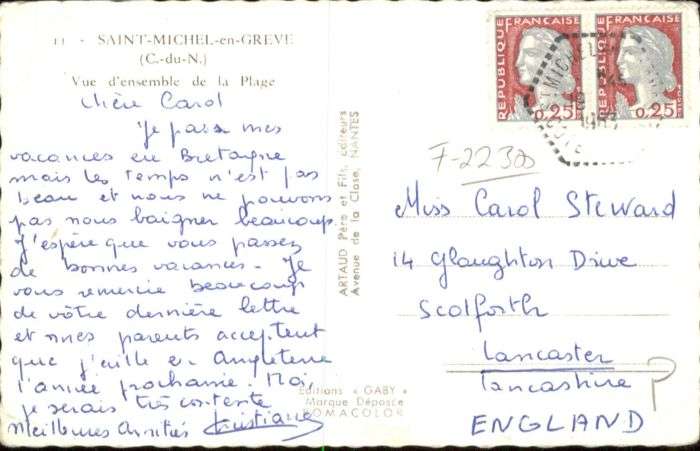 11 - SAINT-MICHEL-en-GREVE
(C.-du-N.)
Vue d'ensemble de la Plage
Chère Carol
Je passe mes
vacances en Bretagne
mais les temps n'est pas
beau et nous ne pouvons
pas nous baigner beaucoup.
J'espère que vous passez
de bonnes vacances. Je
vous remercie beaucoup
de vôtre dernière lettre
et mes parents acceptent
que j'aille en Angleterre
l'année prochaine. Moi,
je serais très contente
Meilleures Amitiés Christiane
ARTAUD Père et Fils, éditeurs
Avenue de la Close, NANTES
Editions « GABY »
Marque Déposée
SOMACOLOR
REPUBLIQUE FRANÇAISE
0,25
REPUBLIQUE FRANÇAISE
0,25
ST MICHEL
F-2230
Miss Carol Steward
14 Glaughton Drive
Scotforth
Lancaster
Lancashire
ENGLAND
P